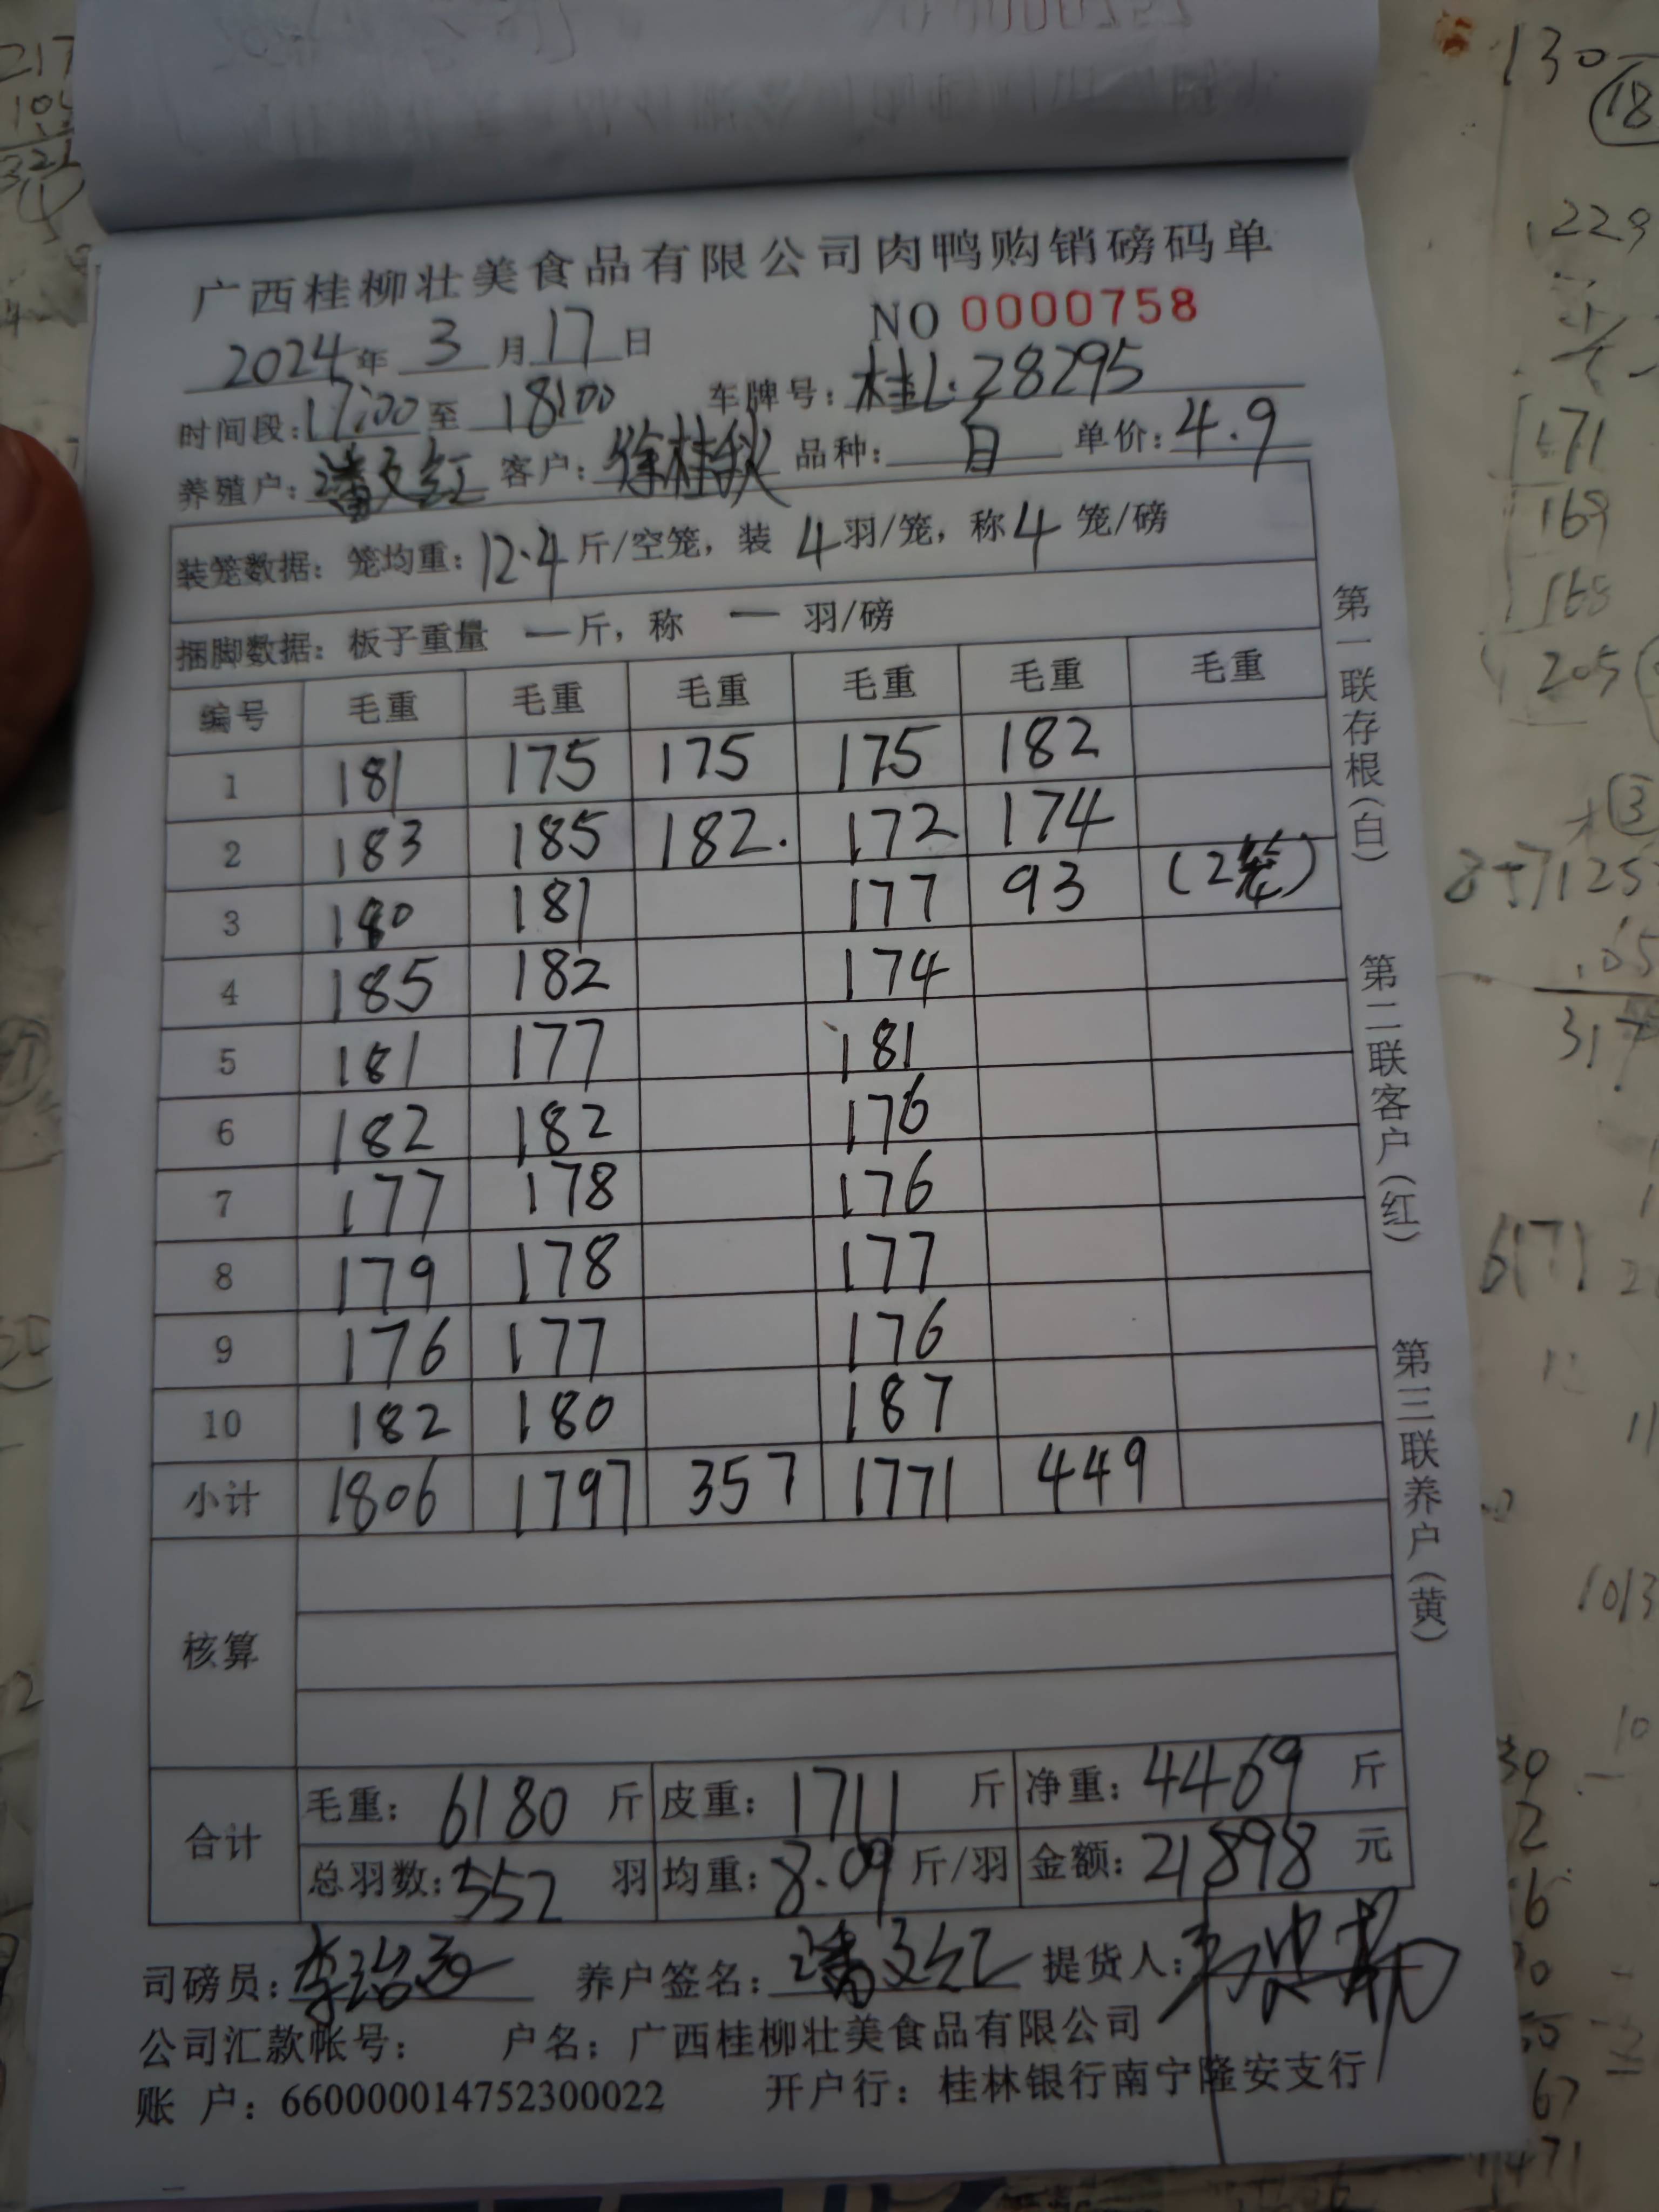 广西桂柳壮美食品有限公司肉鸭购销磅码单
2024年 3 月 17 日 NO 0000758
时间段: 17:00 至 18:00 车牌号: 桂L·28295
养殖户: 潘文红 客户: 徐桂秋 品种: 白 单价: 4.9
装笼数据: 笼均重: 12.4 斤/空笼, 装 4 羽/笼, 称 4 笼/磅
捆脚数据: 板子重量 一 斤, 称 一 羽/磅
编号 毛重 毛重 毛重 毛重 毛重 毛重
1 181 175 175 175 182
2 183 185 182. 172 174
3 180 181 177 93 (2笼)
4 185 182 174
5 181 177 181
6 182 182 176
7 177 178 176
8 179 178 177
9 176 177 176
10 182 180 187
小计 1806 1797 357 1771 449
核算
合计 毛重: 6180 斤 皮重: 1711 斤 净重: 4469 斤
总羽数: 552 羽 均重: 8.09 斤/羽 金额: 21898 元
司磅员: 养户签名: 潘文红 提货人:
公司汇款帐号: 户名: 广西桂柳壮美食品有限公司
账 户: 660000014752300022 开户行: 桂林银行南宁隆安支行
第一联存根(白) 第二联客户(红) 第三联养户(黄)
217
321
130
18
229
171
169
168
205
3
317
6171
1013